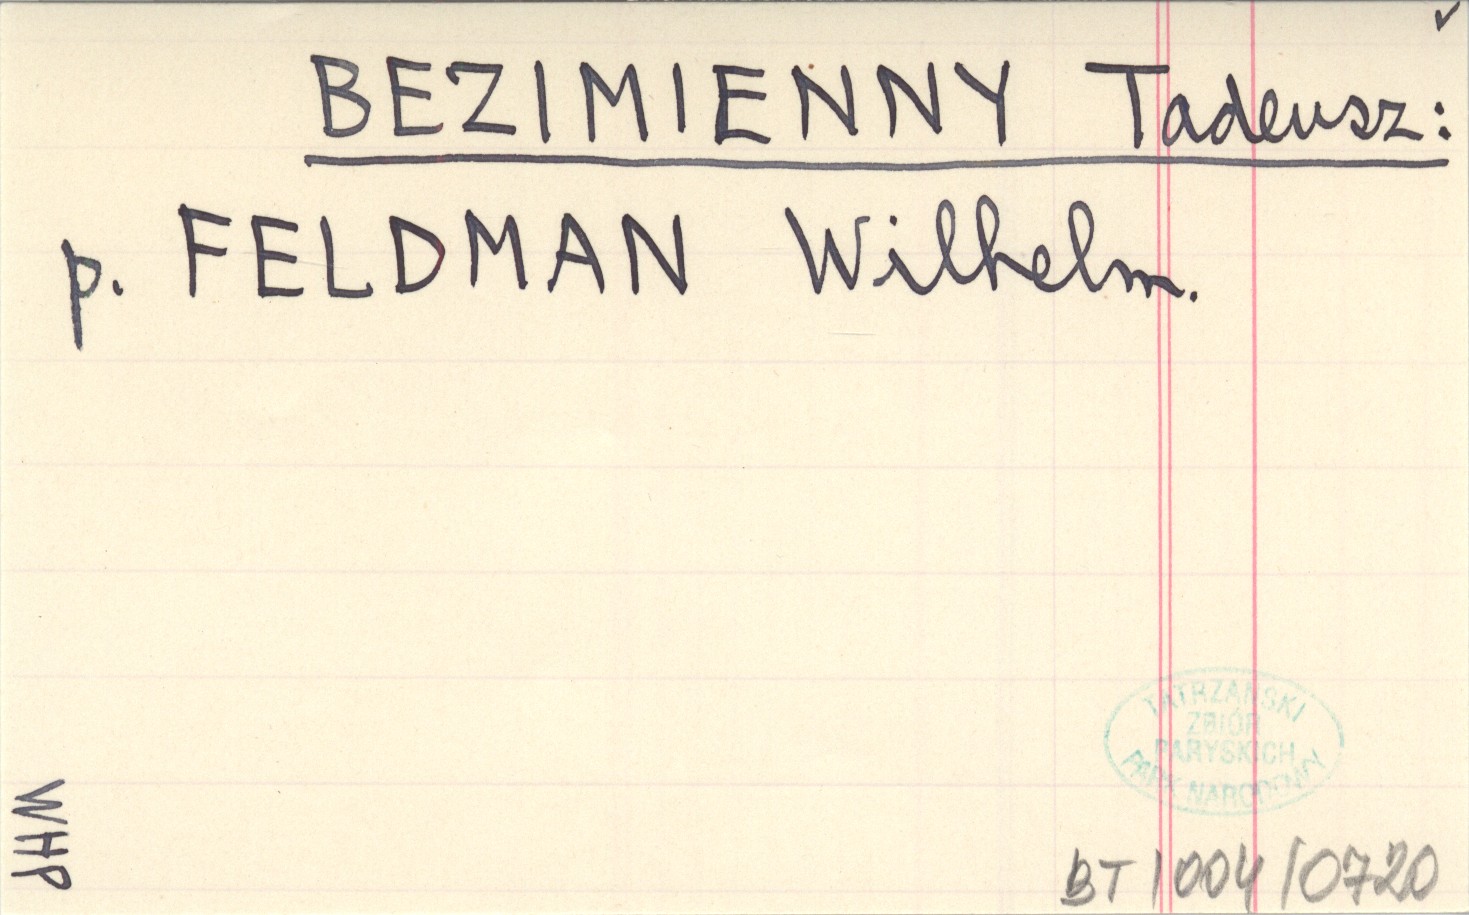 ✓
BEZIMIENNY Tadeusz:
p. FELDMAN Wilhelm.
TATRZAŃSKI
ZBIÓR
PARYSKICH
PARK NARODOWY
WHP
BT/004/0720